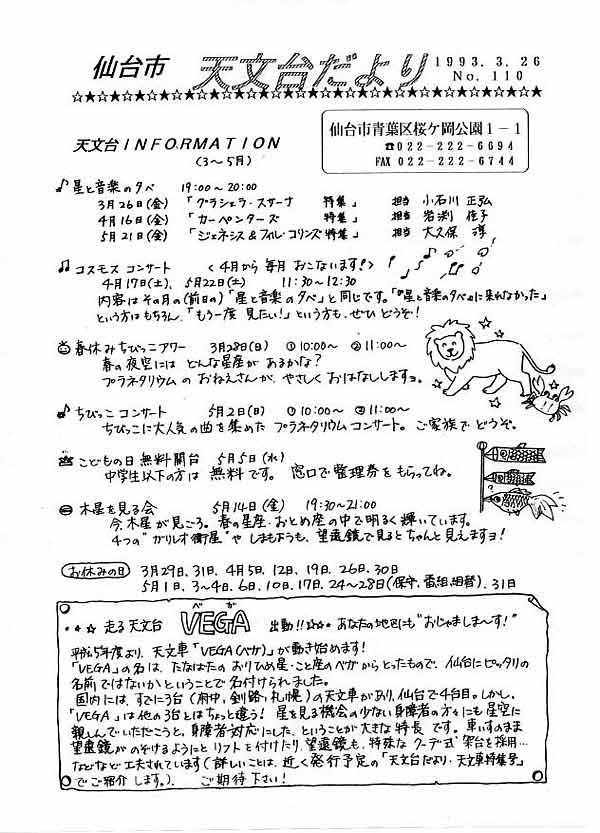 仙台市 天文台だより 1993.3.26
No.110
☆★☆★☆★☆★☆★☆★☆★☆★☆★☆★☆★☆★☆★☆★☆★☆★☆★☆★
仙台市青葉区桜ケ岡公園1-1
☎022-222-6694
FAX 022-222-6744
天文台INFORMATION
(3〜5月)
♪星と音楽の夕べ 19:00〜20:00
3月26日(金) 「グラシェラ・スサーナ 特集」 担当 小石川 正弘
4月16日(金) 「カーペンターズ 特集」 担当 岩渕 佳子
5月21日(金) 「ジェネシス&フィル・コリンズ特集」 担当 大久保 淳
♫コスモスコンサート <4月から毎月おこないます!>
4月17日(土)、5月22日(土) 11:30〜12:30
内容はその月の(前日の)「星と音楽の夕べ」と同じです。「『星と音楽の夕べ』に来れなかった」
という方はもちろん、「もう一度見たい!」という方も、ぜひどうぞ!
春休みちびっこアワー 3月28日(日) ①10:00〜 ②11:00〜
春の夜空には どんな星座が あるかな?
プラネタリウムの おねえさんが、やさしく おはなししますョ。
♪ちびっこコンサート 5月2日(日) ①10:00〜 ②11:00〜
ちびっこに大人気の曲を集めた プラネタリウムコンサート。ご家族で どうぞ。
こどもの日 無料開台 5月5日(水)
中学生以下の方は 無料です。 窓口で整理券をもらってね。
木星を見る会 5月14日(金) 19:30〜21:00
今、木星が見ごろ。春の星座・おとめ座の中で明るく輝いています。
4つの"ガリレオ衛星"や しまもようも、望遠鏡で見るとちゃんと見えますョ!
お休みの日 3月29日、31日、4月5日、12日、19日、26日、30日
5月1日、3〜4日、6日、10日、17日、24〜28日(保守、番組組替)、31日
・・☆ 走る天文台 VEGA 出動!!☆☆・ あなたの地区にも"おじゃましま〜す!"
ベガ
平成5年度より、天文車「VEGA(ベガ)」が動き始めます!
「VEGA」の名は、たなばたの おりひめ星・こと座のベガからとったもので、仙台にピッタリの
名前ではないかということで名付けられました。
国内には、すでに3台(府中、釧路、札幌)の天文車があり、仙台で4台目。しかし、
「VEGA」は他の3台とはちょっと違う! 星を見る機会の少ない身障者の方々にも星空に
親しんでいただこうと、身障者対応にした、ということが大きな特長です。車いすのまま
望遠鏡がのぞけるようにとリフトを付けたり、望遠鏡も、特殊なクーデ式架台を採用…
などなど工夫されています(詳しいことは、近く発行予定の「天文台だより・天文車特集号」
でご紹介します。)。 ご期待下さい!